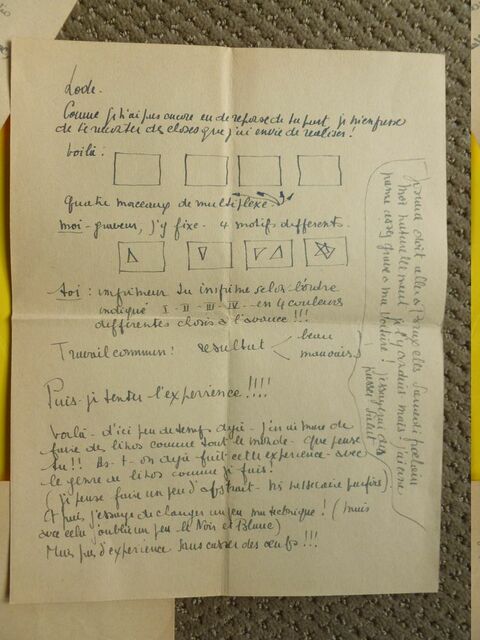 Lode.
Comme je n'ai pas encore eu de reponse de ta part, je m'empresse
de te raconter des choses que j'ai envie de realiser!
Voilà :
Quatre morceaux de multiplexe
moi - graveur, j'y fixe 4 motifs differents.
toi : imprimeur tu imprime selon l'ordre
indiqué I - II - III - IV - en 4 couleurs
differentes choisis à l'avance !!!
Travail commun : resultat
beau
mauvais
Puis-je tenter l'experience !!!!
Voilà - d'ici peu de temps déjà - j'en ai marre de
faire des linos comme tout le monde - que pense
tu !! As-t-on déjà fait cette experience - avec
le genre de linos comme je fais!
(je pense faire un peu d'abstrait - )
Et puis j'essaye de changer un peu ma technique ! (mais
avec cela j'oublie un peu le Noir et Blanc)
Mais pas d'experience sans casser des œufs !!!
doit aller à Bruxelles Samedi prochain
Moi naturellement je l'y conduis mais! j'ai une
panne assez grave à ma voiture! j'essayerai de
passer Salut